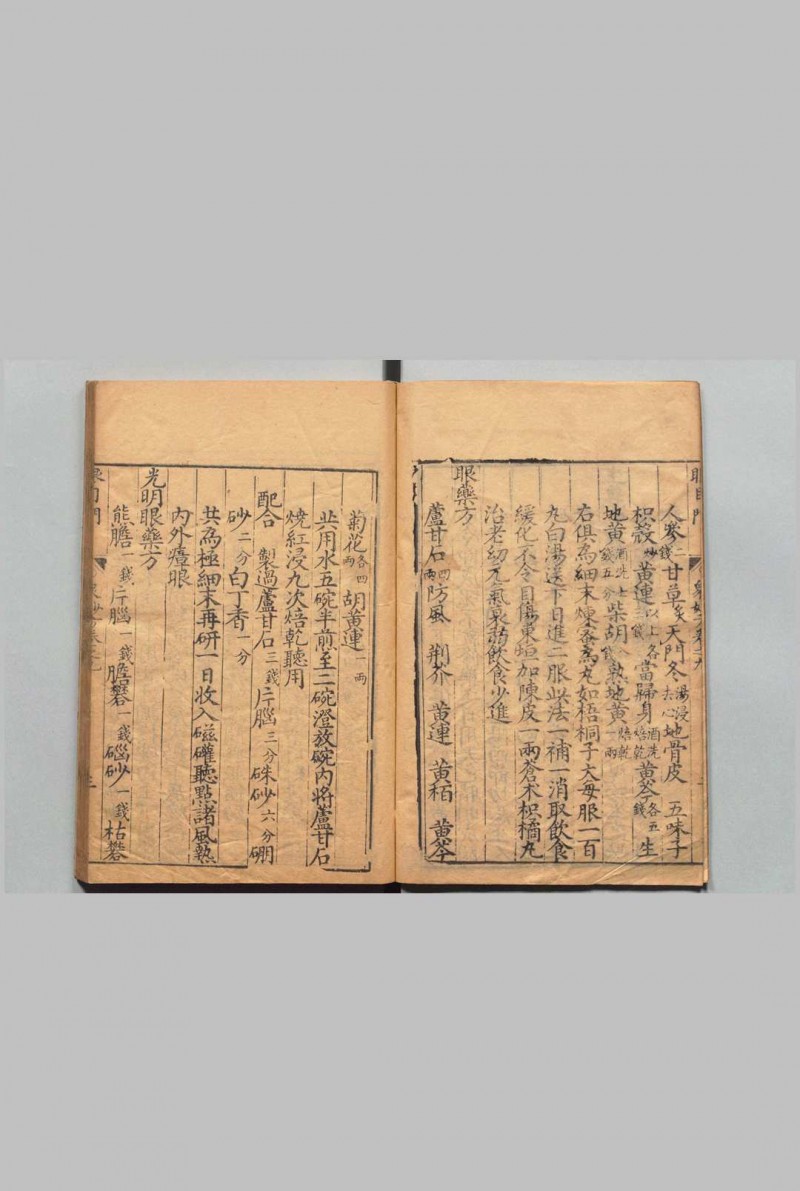 人參二錢甘草炙天門冬湯浸去心地骨皮五味子
枳殼炒黃連三錢以上各當歸身酒洗焙乾黃芩各五錢生
地黃酒洗七錢五分柴胡八錢熟地黃焙乾一兩
右俱為細末煉蜜為丸如梧桐子大每服一百
丸白湯送下日進二服此法一補一消取飲食
緩化不令目傷東垣加陳皮一兩蒼朮枳橘丸
治老幼元氣衰弱飲食少進
眼藥方
蘆甘石四兩防風 荆芥 黃連 黃栢 黃芩
菊花各四兩胡黃連一兩
共用水五碗半煎至二碗澄放碗內將蘆甘石
燒紅浸九次焙乾聽用
配合 製過蘆甘石三錢片腦三分硃砂六分硼
砂二分白丁香一分
共為極細末再研一日收入磁罐聽點諸風熱
內外瘴眼
光明眼藥方
熊膽一錢片腦一錢膽礬一錢碯砂一錢枯礬